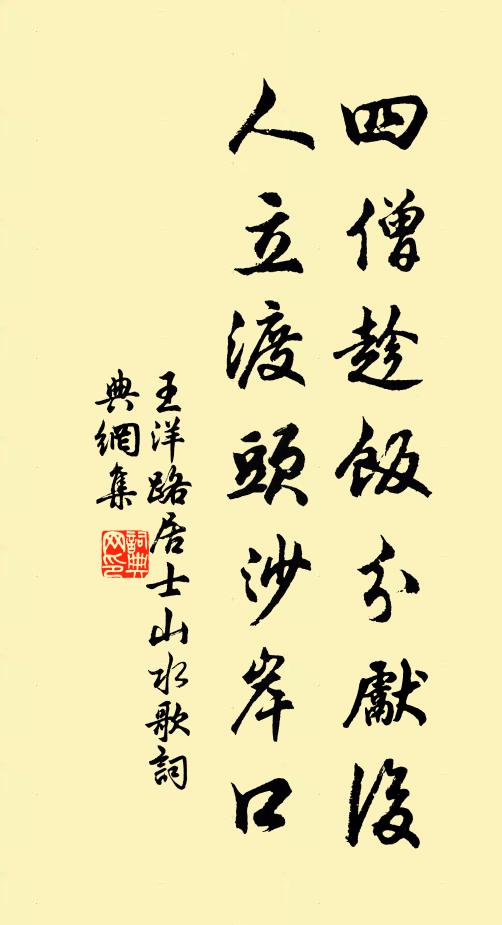 四僧趁飯分獻後
人立渡頭沙岸口
王洋路居士山水歌詞
典網集
詞典
网印